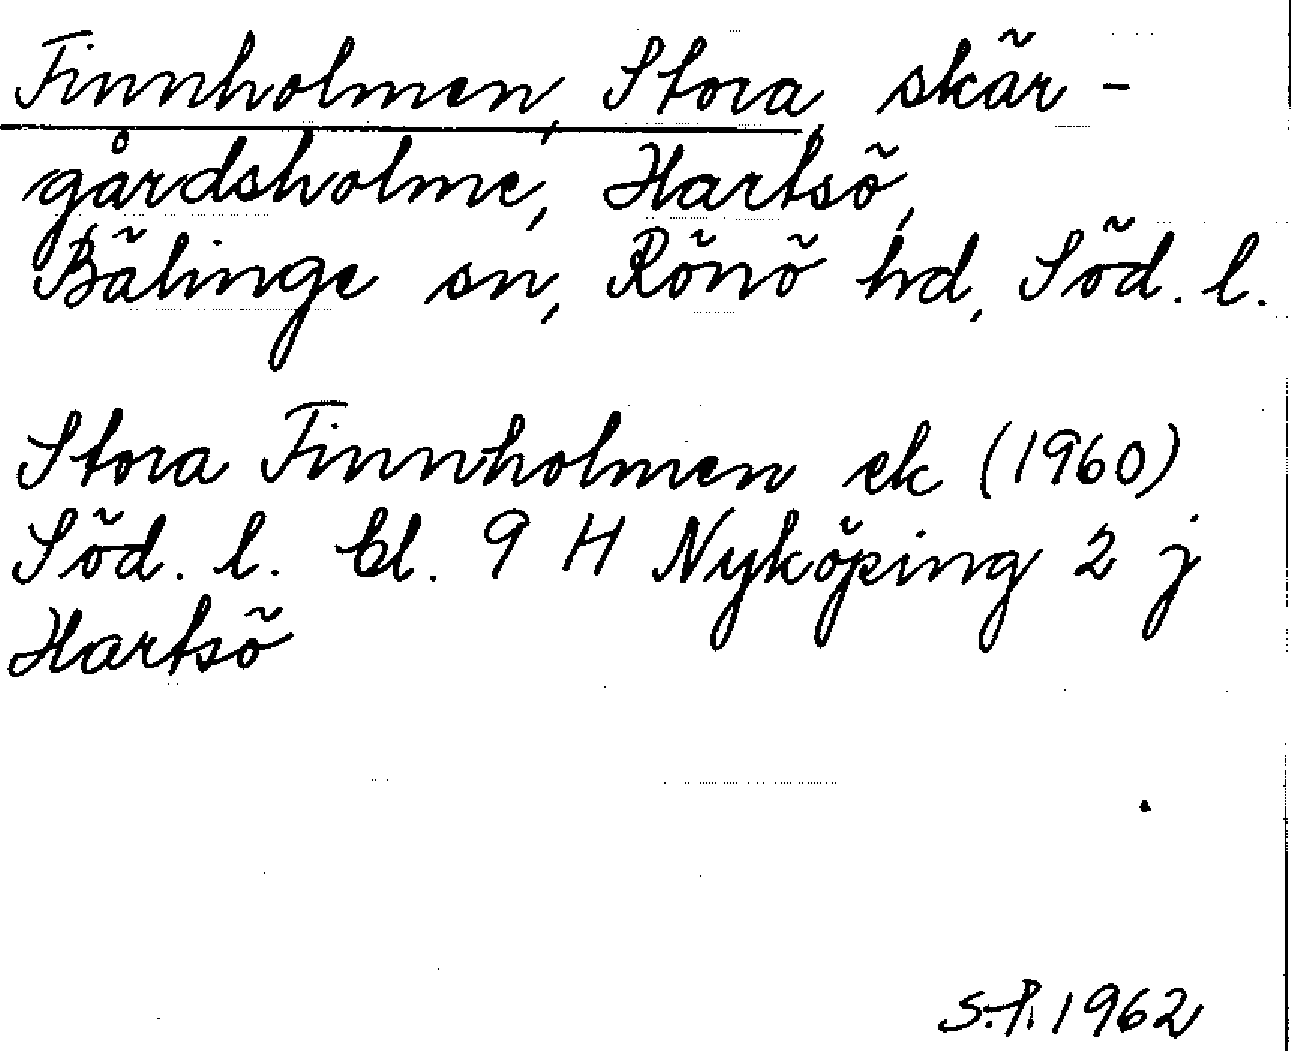 Finnholmen, Stora, skär-
gårdsholme, Hartsö,
Bälinge sn, Rönö hd, Söd. l.
Stora Finnholmen ek (1960)
Söd. l. bl. 9 H Nyköping 2 j
Hartsö
S.P. 1962